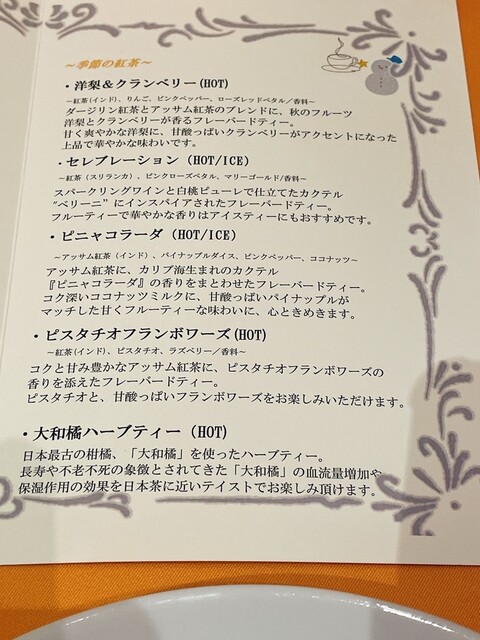 ～季節の紅茶～
・洋梨＆クランベリー(HOT)
～紅茶(インド)、りんご、ピンクペッパー、ローズレッドペタル／香料～
ダージリン紅茶とアッサム紅茶のブレンドに、秋のフルーツ
洋梨とクランベリーが香るフレーバードティー。
甘く爽やかな洋梨に、甘酸っぱいクランベリーがアクセントになった
上品で華やかな味わいです。
・セレブレーション（HOT/ICE）
～紅茶（スリランカ）、ピンクローズペタル、マリーゴールド/香料～
スパークリングワインと白桃ピューレで仕立てたカクテル
"ベリーニ”にインスパイアされたフレーバードティー。
フルーティーで華やかな香りはアイスティーにもおすすめです。
・ピニャコラーダ（HOT/ICE）
～アッサム紅茶（インド）、パイナップルダイス、ピンクペッパー、ココナッツ～
アッサム紅茶に、カリブ海生まれのカクテル
『ピニャコラーダ』の香りをまとわせたフレーバードティー。
コク深いココナッツミルクに、甘酸っぱいパイナップルが
マッチした甘くフルーティーな味わいに、心ときめきます。
・ピスタチオフランボワーズ(HOT)
～紅茶(インド)、ピスタチオ、ラズベリー／香料～
コクと甘み豊かなアッサム紅茶に、ピスタチオフランボワーズの
香りを添えたフレーバードティー。
ピスタチオと、甘酸っぱいフランボワーズをお楽しみいただけます。
・大和橘ハーブティー（HOT)
日本最古の柑橘、「大和橘」を使ったハーブティー。
長寿や不老不死の象徴とされてきた「大和橘」の血流量増加や
保湿作用の効果を日本茶に近いテイストでお楽しみ頂けます。